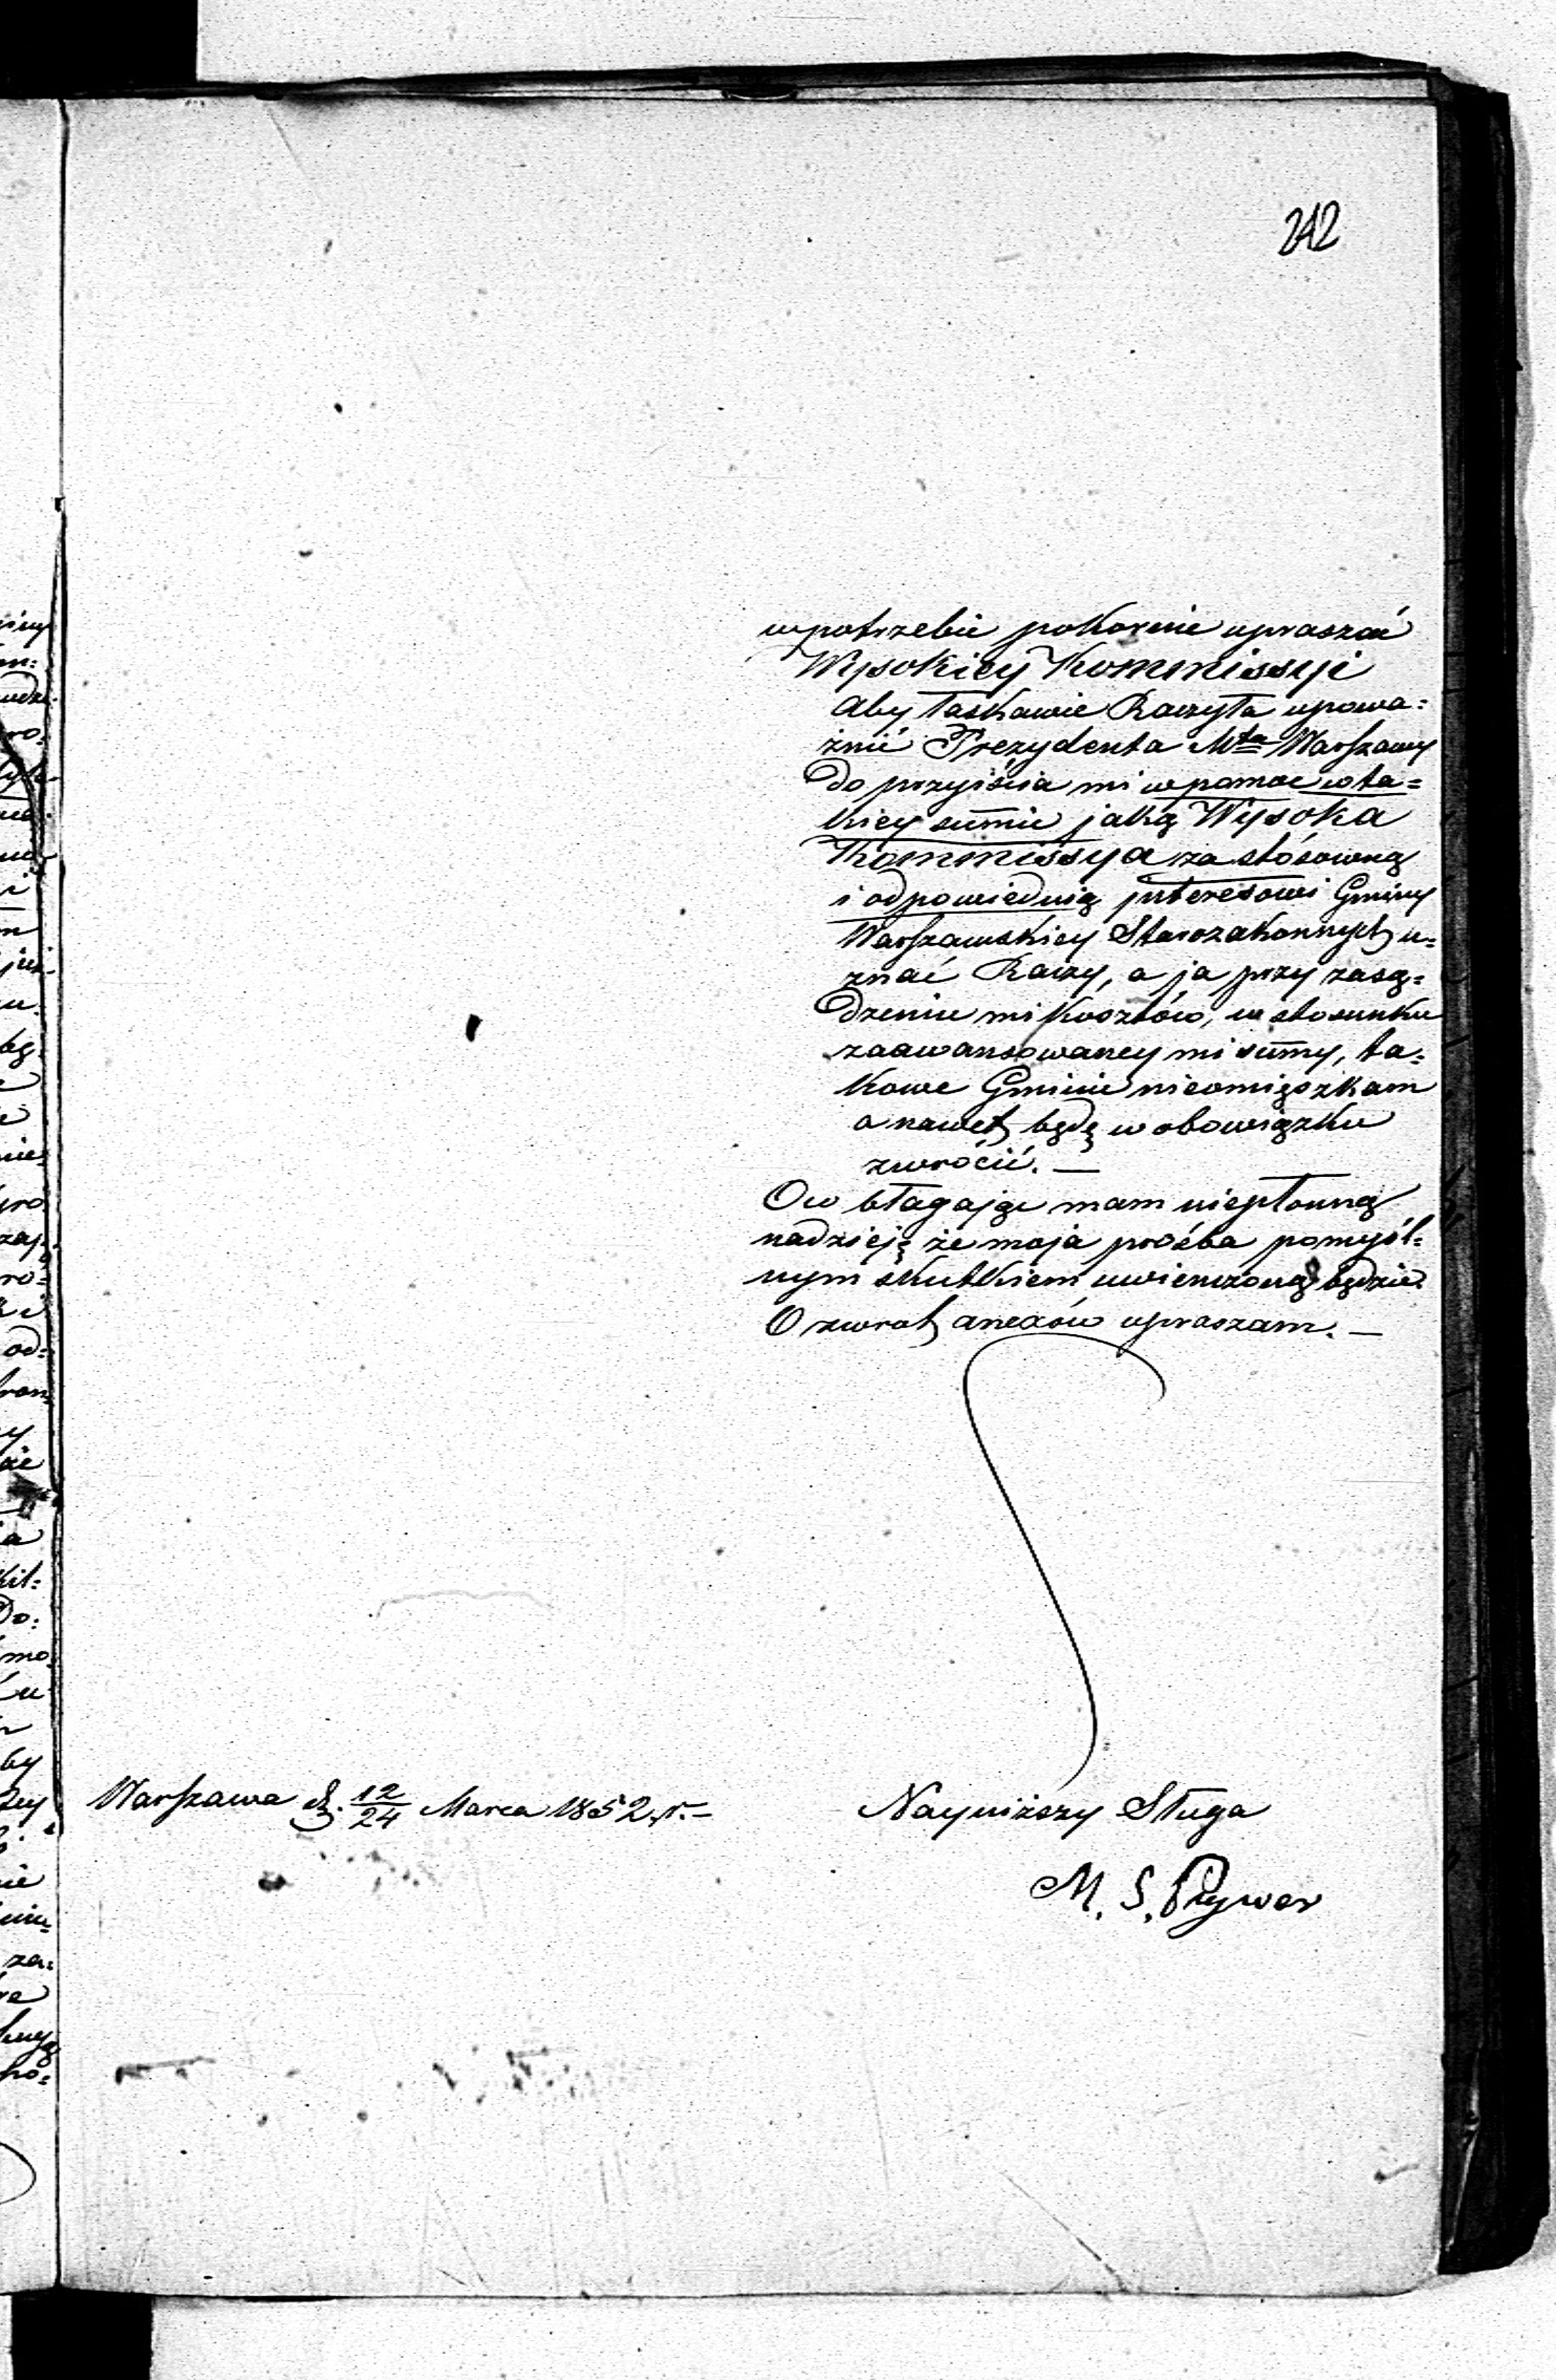 242
w potrzebie pokornie upraszać
Wysokiey Kommissyi
Aby łaskawie Raczyła upowa=
żnić Prezydenta Mta Warszawy
Do przyiścia mi w pomoc w ta=
kiey summie jaką Wysoka
Kommissya za stósowną
i odpowiednią interesowi Gminy
Warszawskiey Starozakonnych u=
znać Raczy, a ja przy zasą=
dzeniu mi kosztów, w stosunku
zaawansowaney mi summy, ta=
kowe Gminie nieomięszkam
a nawet będę w obowiązku
zwrócić. —
O co błagając mam niepłonną
nadzieję że moja prośba pomyśl=
nym skutkiem uwienczoną będzie.
O zwrot anexów upraszam. —
Warszawa d. 12/24 Marca 1852 r. —
Nayniższy Sługa
M. S.